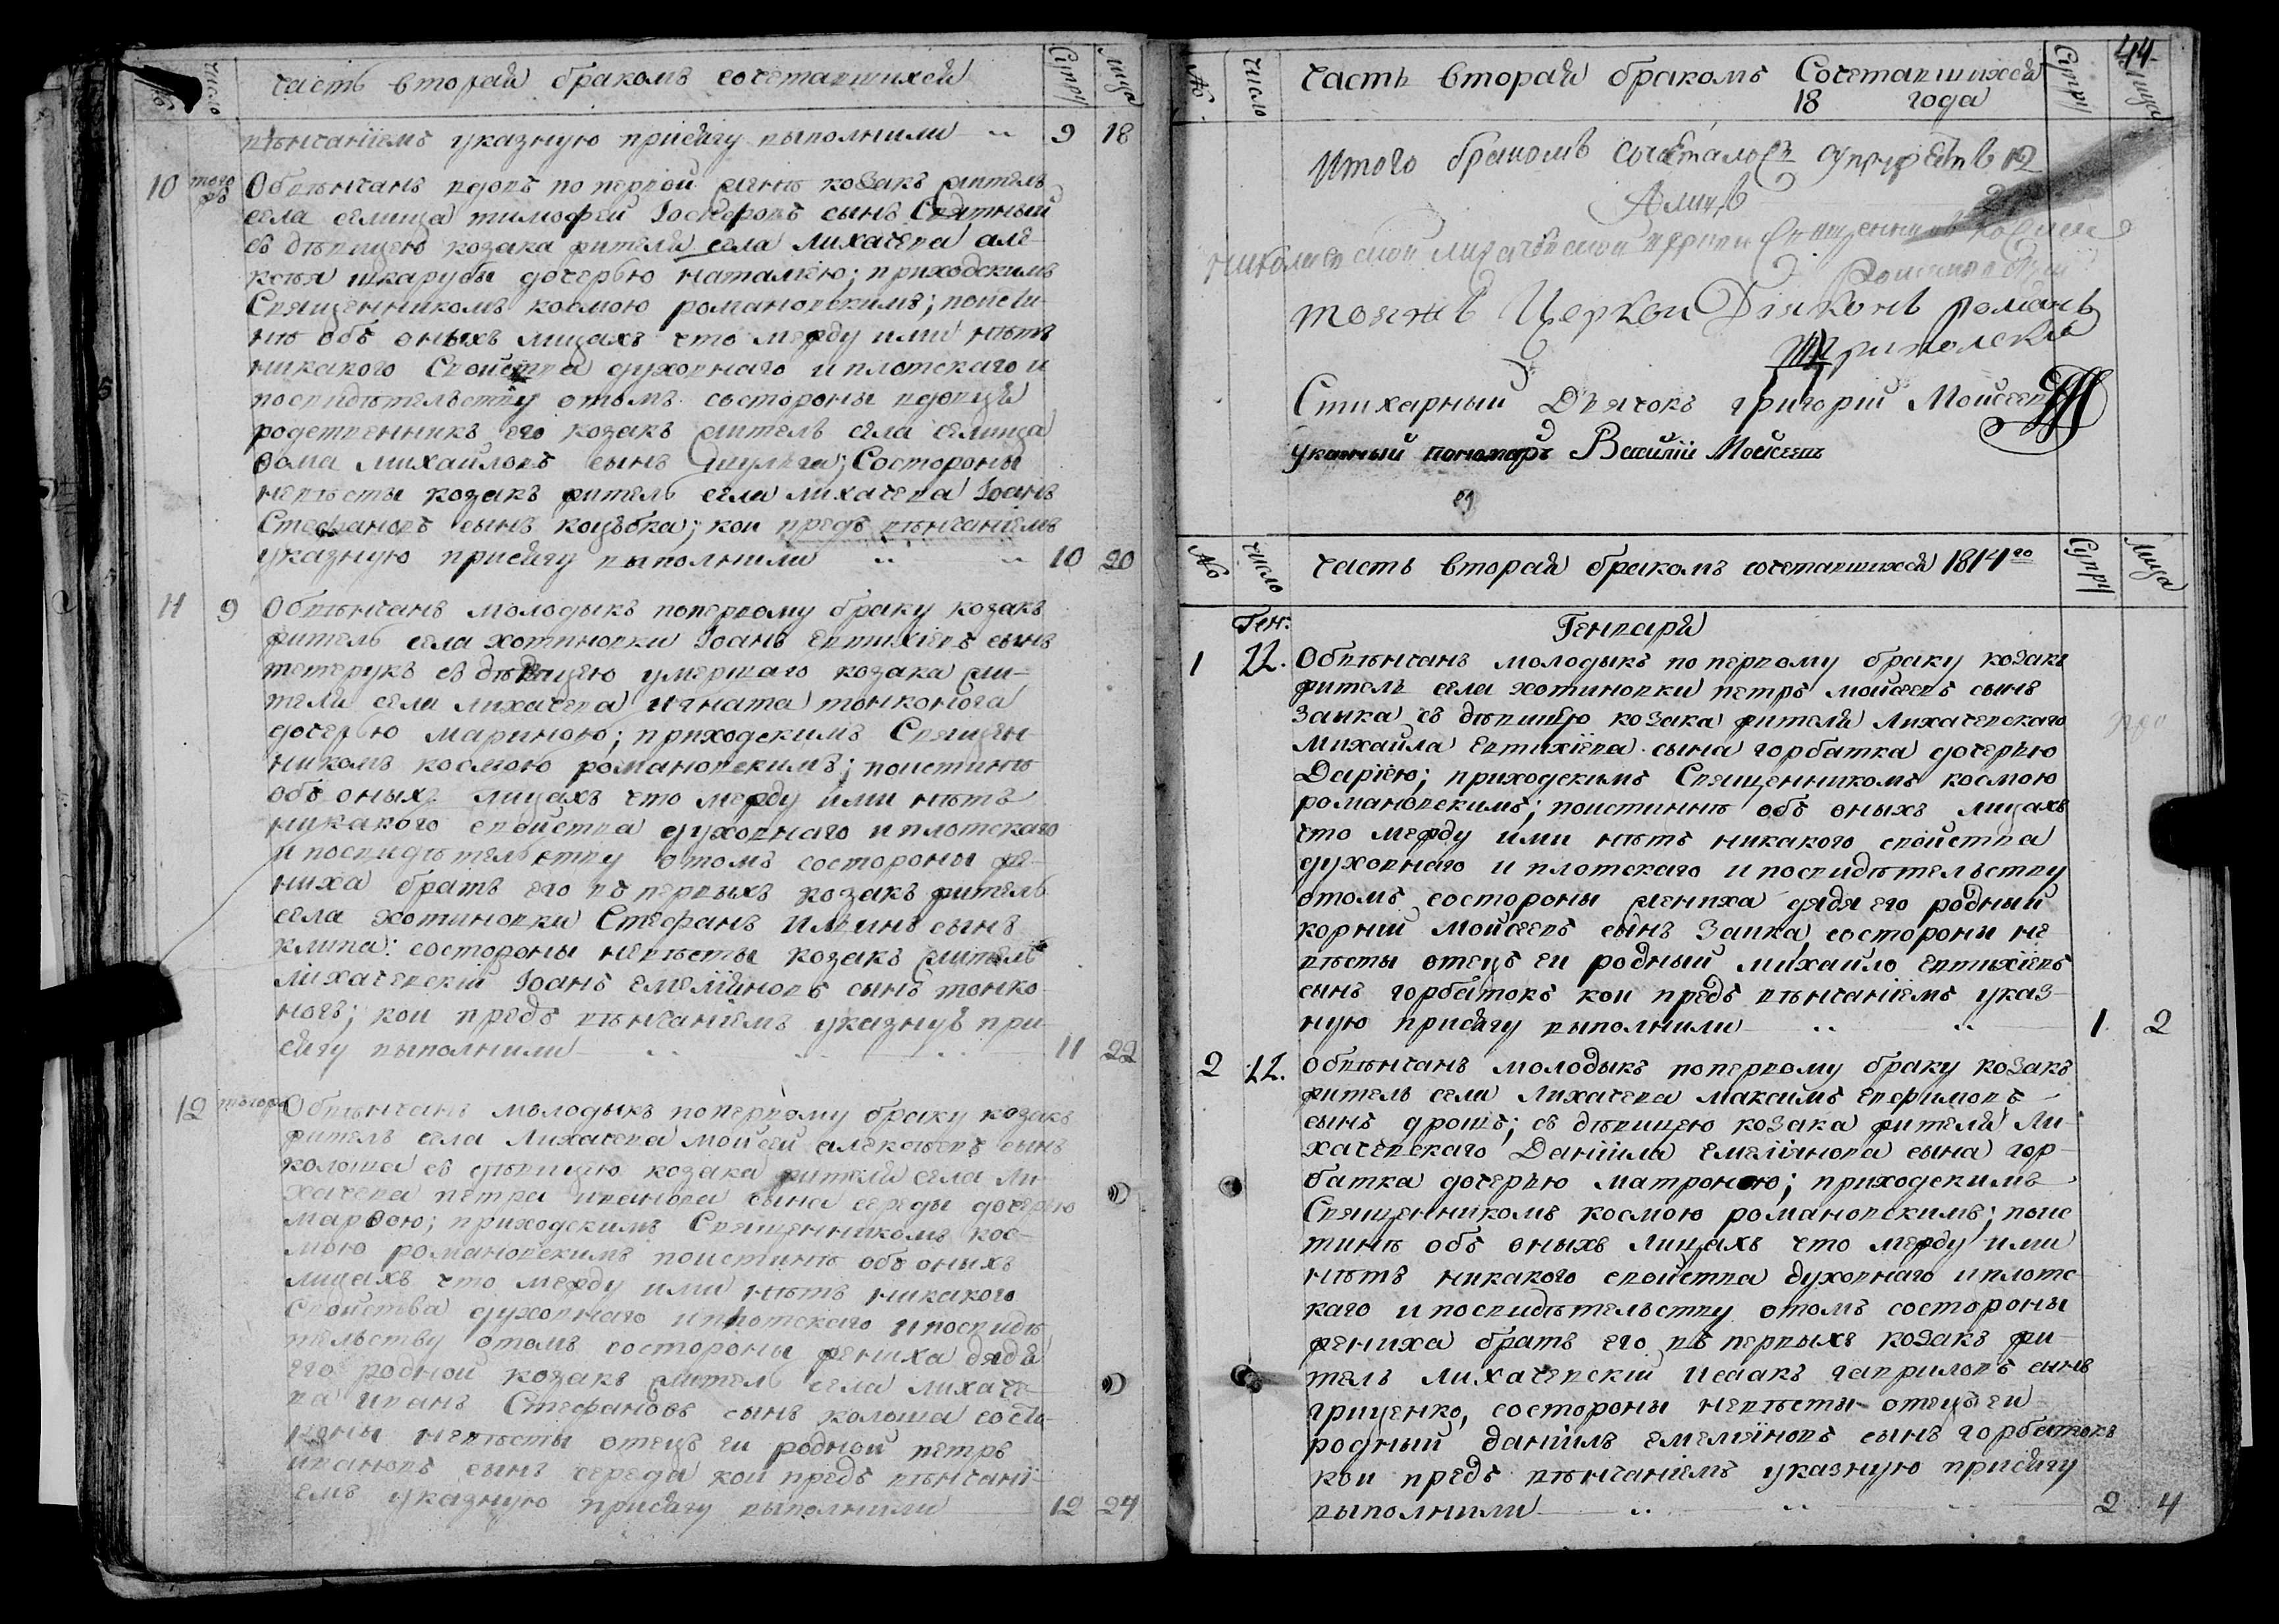 №
число
часть вторая бракомъ сочетавшихся
Супру
лица
вѣнчаніемъ указную присягу выполнили 9 18
10 того жъ Обвѣнчанъ вдовъ по первой женѣ козакъ житель
села селища тимофей Іосифовъ сынъ
съ дѣвицею козака жителя села лихачева але-
ксѣя шкарубы дочерью наталіею; приходскимъ
Священникомъ космою романовскимъ; поисти-
нѣ объ оныхъ лицахъ что между ими нѣтъ
никакого Свойства духовнаго и плотскаго и
посвидѣтельству отомъ состороны вдовца
родственникъ его козакъ житель села селища
Ѳома михайловъ сынъ шульга; Состороны
невѣсты козакъ житель села лихачева Іоанъ
Стефановъ сынъ коцюбка; кои предъ вѣнчаніемъ
указную присягу выполнили 10 20
11 9 Обвѣнчанъ молодыкъ попервому браку козакъ
житель села хотиновки Іоанъ Евтихіевъ сынъ
тетерукъ съ дѣвицею умершаго козака жи-
теля села лихачева игната тонконога
дочерью мариною; приходскимъ Священ-
никомъ космою романовскимъ; поистинѣ
объ оныхъ лицахъ что между ими нѣтъ
никакого свойства духовнаго и плотскаго
и посвидѣтельству отомъ состороны же-
ниха братъ его въ первыхъ козакъ житель
села хотиновки Стефанъ Ильинъ сынъ
клипа: состороны невѣсты козакъ житель
лихачевскій Іоанъ емеліяновъ сынъ тонко-
ногъ; кои предъ вѣнчаніемъ указную при-
сягу выполнили 11 22
12 тогожъ Обвѣнчанъ молодыкъ попервому браку козакъ
житель села Лихачева моисей алексѣевъ сынъ
колоша съ дѣвицею козака жителя села ли-
хачева петра иванова сына середы дочерью
марѳою; приходскимъ Священникомъ кос-
мою романовскимъ поистинѣ объ оныхъ
лицахъ что между ими нѣтъ никакого
Свойства духовнаго и плотскаго и посвидѣ
тельству отомъ состороны жениха дядя
его родной козакъ житель села лихаче-
ва иванъ Стефановъ сынъ колоша состо-
роны невѣсты отецъ ей родной петръ
ивановъ сынъ середа кои предъ вѣнчані-
емъ указную присягу выполнили 12 24
44
№
число
часть вторая бракомъ Сочетавшихся
18 года
Супру
лица
Итого бракомъ сочеталось супружествъ 12
А лицъ
николаевской лихачевской церкви священникъ косма
романовскій
тояжъ Церкви Діяконъ романъ
Триполскій
Стихарный Дьячокъ григорій Моисеевъ
указный пономарь Василій Моисеевъ
№
число
часть вторая бракомъ сочетавшихся 1814го
Супру
лица
Ген: Генваря
1 22. Обвѣнчанъ молодыкъ по первому браку козакъ
житель села хотиновки петръ моисеевъ сынъ
Заика съ дѣвицею козака жителя Лихачевскаго
Михайла Евтихіева сына горбатка дочерью
Даріею; приходскимъ Священникомъ космою
романовскимъ; поистиннѣ объ оныхъ лицахъ
что между ими нѣтъ никакого свойства
духовнаго и плотскаго и посвидѣтельству
отомъ состороны жениха дядя его родный
корній Мойсеевъ сынъ Заика, состорони не
вѣсты отецъ ей родный михайло Евтихіевъ
сынъ горбатокъ кои предъ вѣнчаніемъ указ-
ную присягу выполнили 1. 2
2 22. Обвѣнчанъ молодыкъ попервому браку козакъ
житель села Лихачева максимъ Евфимовъ
сынъ дрошъ; съ дѣвицею козака жителя Ли-
хачевскаго Даніила Емеліянова сына гор-
батка дочерью матроною; приходскимъ
Священникомъ космою романовскимъ; поис
тинѣ объ оныхъ лицахъ что между ими
нѣтъ никакого свойства духовнаго и плотс
каго и посвидѣтельству отомъ состороны
жениха братъ его въ первыхъ козакъ жи-
тель лихачевскій исаакъ гавриловъ сынъ
гриценко, состороны невѣсты отецъ ей
родный даніилъ емеліяновъ сынъ горбатокъ
кои предъ вѣнчаніемъ указную присягу
выполнили 2 4